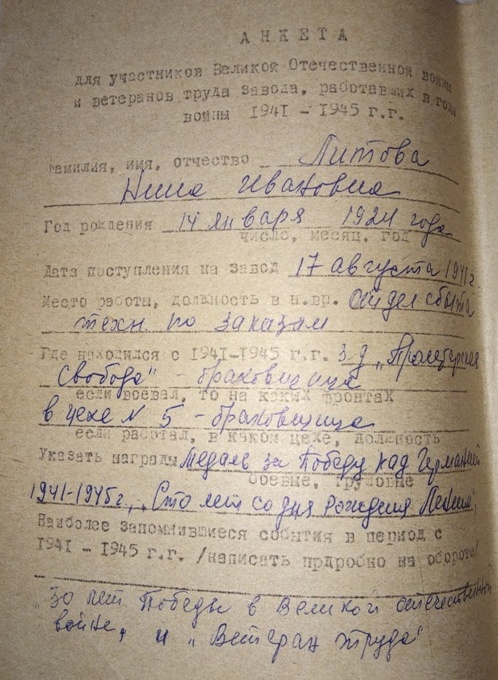 АНКЕТА
для участников Великой Отечественной войны
и ветеранов труда завода, работавших в годы
войны 1941 - 1945 г.г.
Фамилия, имя, отчество Литова
Нина Ивановна
Год рождения 14 января 1924 года
число, месяц, год
Дата поступления на завод 17 августа 1941 г.
Место работы, должность в н.вр. отдел сбыта
техн. по заказам
Где находился с 1941-1945 г.г. з-д „Пролетарская
Свобода" браковщица
если воевал, то на каких фронтах
в цехе N 5 - браковщица
если работал, в каком цехе, должность
Указать награды Медаль за Победу над Германией
боевые, трудовые
1941-1945г, „Сто лет со дня рождения Ленина,
Наиболее запомнившиеся события в период с
1941 - 1945 г.г. /написать прдробно на обороте/
30 лет Победы в Великой отечественной
войне, и „Ветеран труда"